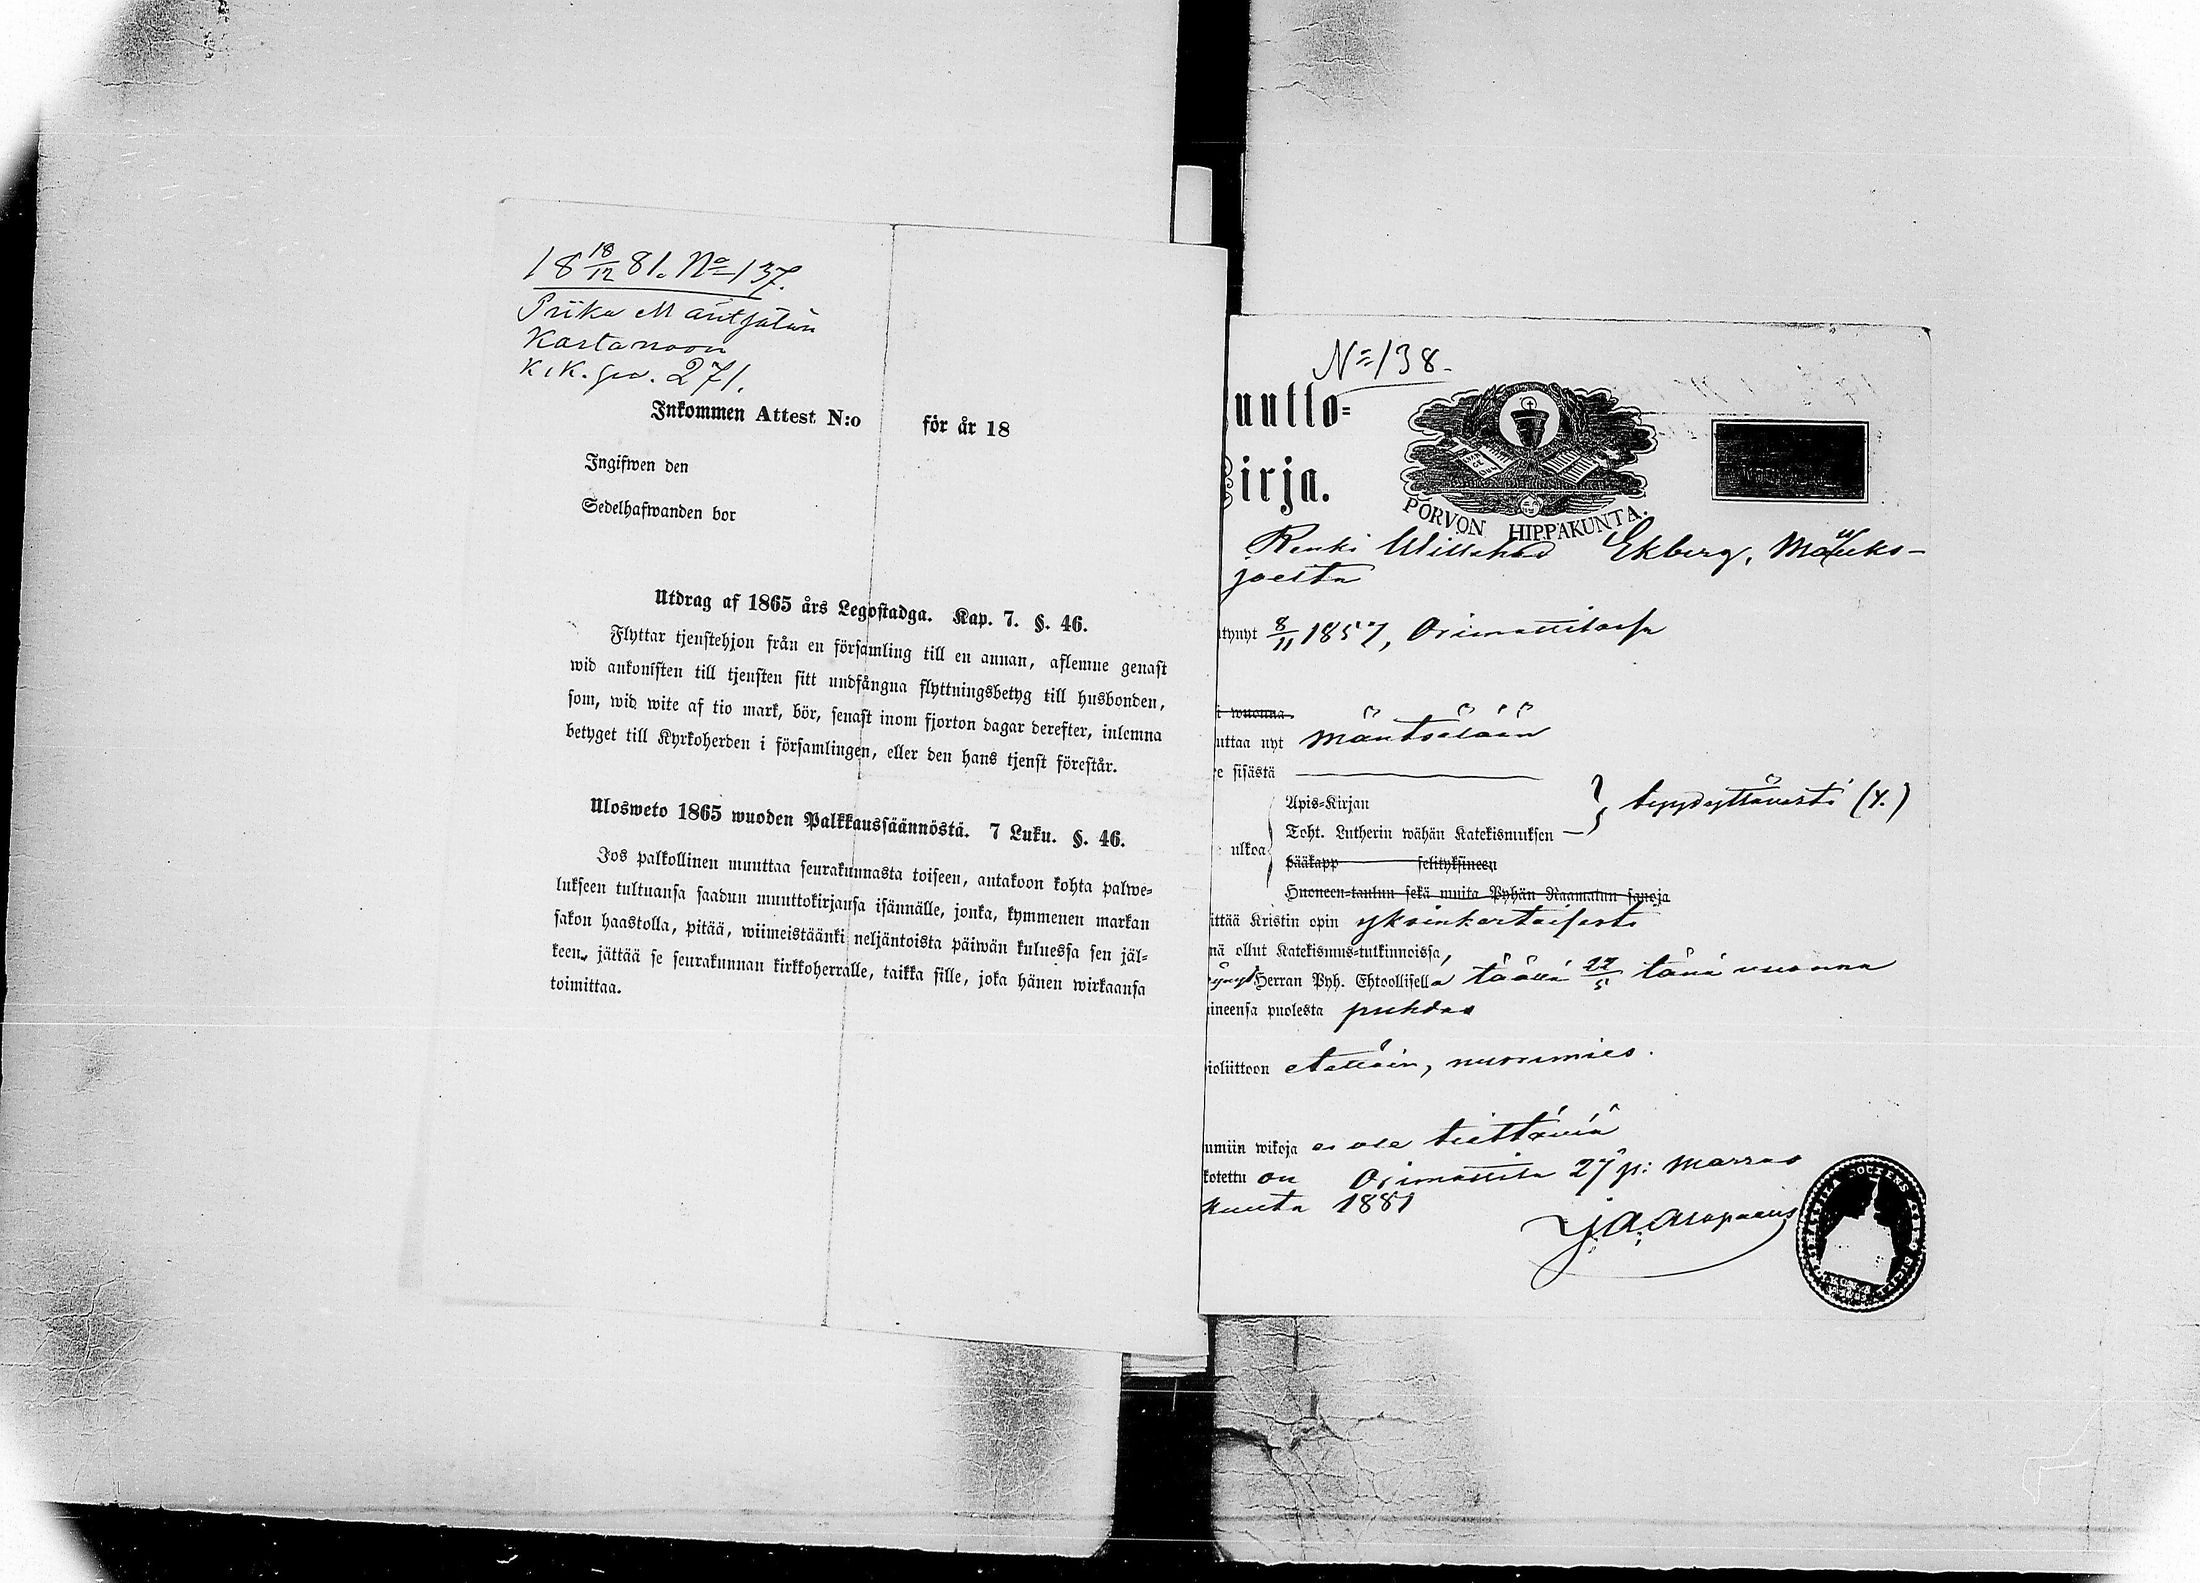 18 18/12 81. No 137.
Piika Mäntsälän
Kartanoon
K.K. siv. 271.
Inkommen Attest N:o för år 18
Ingifwen den
Sedelhafwanden bor
Utdrag af 1865 års Legostadga. Kap. 7. §. 46.
Flyttar tjenstehjon från en församling till en annan, aflemne genast
wid ankomsten till tjensten sitt undfångna flyttningsbetyg till husbonden,
som, wid wite af tio mark, bör, senast inom fjorton dagar derefter, inlemna
betyget till Kyrkoherden i församlingen, eller den hans tjenst förestår.
Ulosweto 1865 wuoden Palkkaussäännöstä. 7 Luku. §. 46.
Jos palkollinen muuttaa seurakunnasta toiseen, antakoon kohta palwe-
lukseen tultuansa saadun muuttokirjansa isännälle, jonka, kymmenen markan
sakon haastolla, pitää, wiimeistäänki neljäntoista päiwän kuluessa sen jäl-
keen, jättää se seurakunnan kirkkoherralle, taikka sille, joka hänen wirkaansa
toimittaa.
No 138.
uutto-
irja.
PORVON HIPPAKUNTA.
Renki Willehad Ekberg,
joelta
tynyt 8/11 1857, Orimattilassa
i wuonna.
uttaa nyt Mäntsälään
e sisästä
Apis-Kirjan
Toht. Lutherin wähän Katekismuksen } tyydyttävästi (4.)
ulkoa
pääkapp selityksineen
Huoneen-taulun sekä muita Pyhän Raamatun sanoja
ittää Kristin opin yksinkertaisesti
nä ollut Katekismus-tutkinnoissa,
Herran Pyh. Ehtoollisella täällä 27/5 tänä vuonna
ineensa puolesta puhdas
ioliittoon etellään, nuorimies.
umiin wikoja ei ole tiettäviä
totettu on Orimattila 27 p: Marras
kuuta 1881